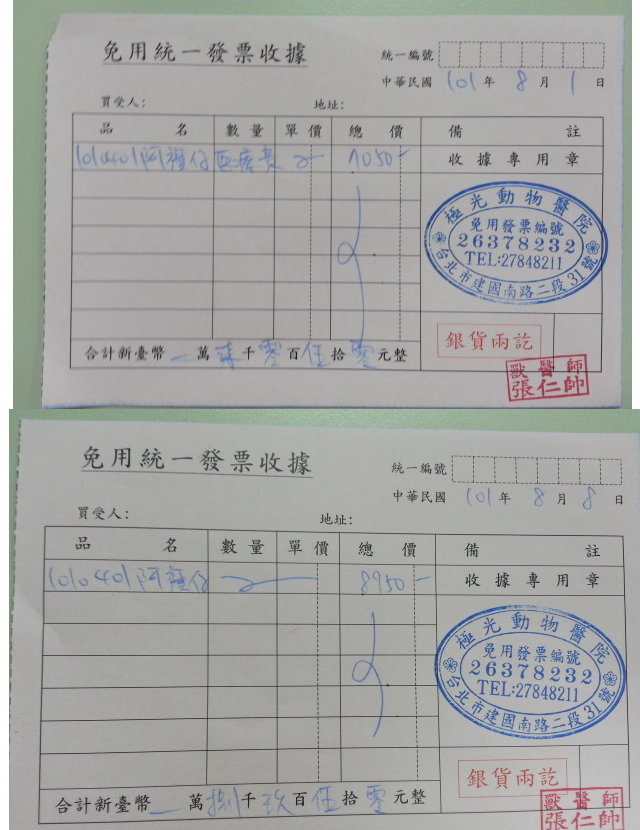 免用統一發票收據
統一編號
中華民國 101 年 8 月 1 日
買受人: 地址:
品名 數量 單價 總價 備註
1010401阿福仔 医療費 7050-
收據專用章
極光動物醫院
免用發票編號
26378232
TEL:27848211
台北市建國南路二段31號
銀貨兩訖
合計新臺幣 一 萬 柒 千 零 百 伍 拾 零 元整
獸醫師
張仁帥
免用統一發票收據
統一編號
中華民國 101 年 8 月 8 日
買受人: 地址:
品名 數量 單價 總價 備註
1010401阿福仔 8950-
收據專用章
極光動物醫院
免用發票編號
26378232
TEL:27848211
台北市建國南路二段31號
銀貨兩訖
合計新臺幣 一 萬 捌 千 玖 百 伍 拾 零 元整
獸醫師
張仁帥